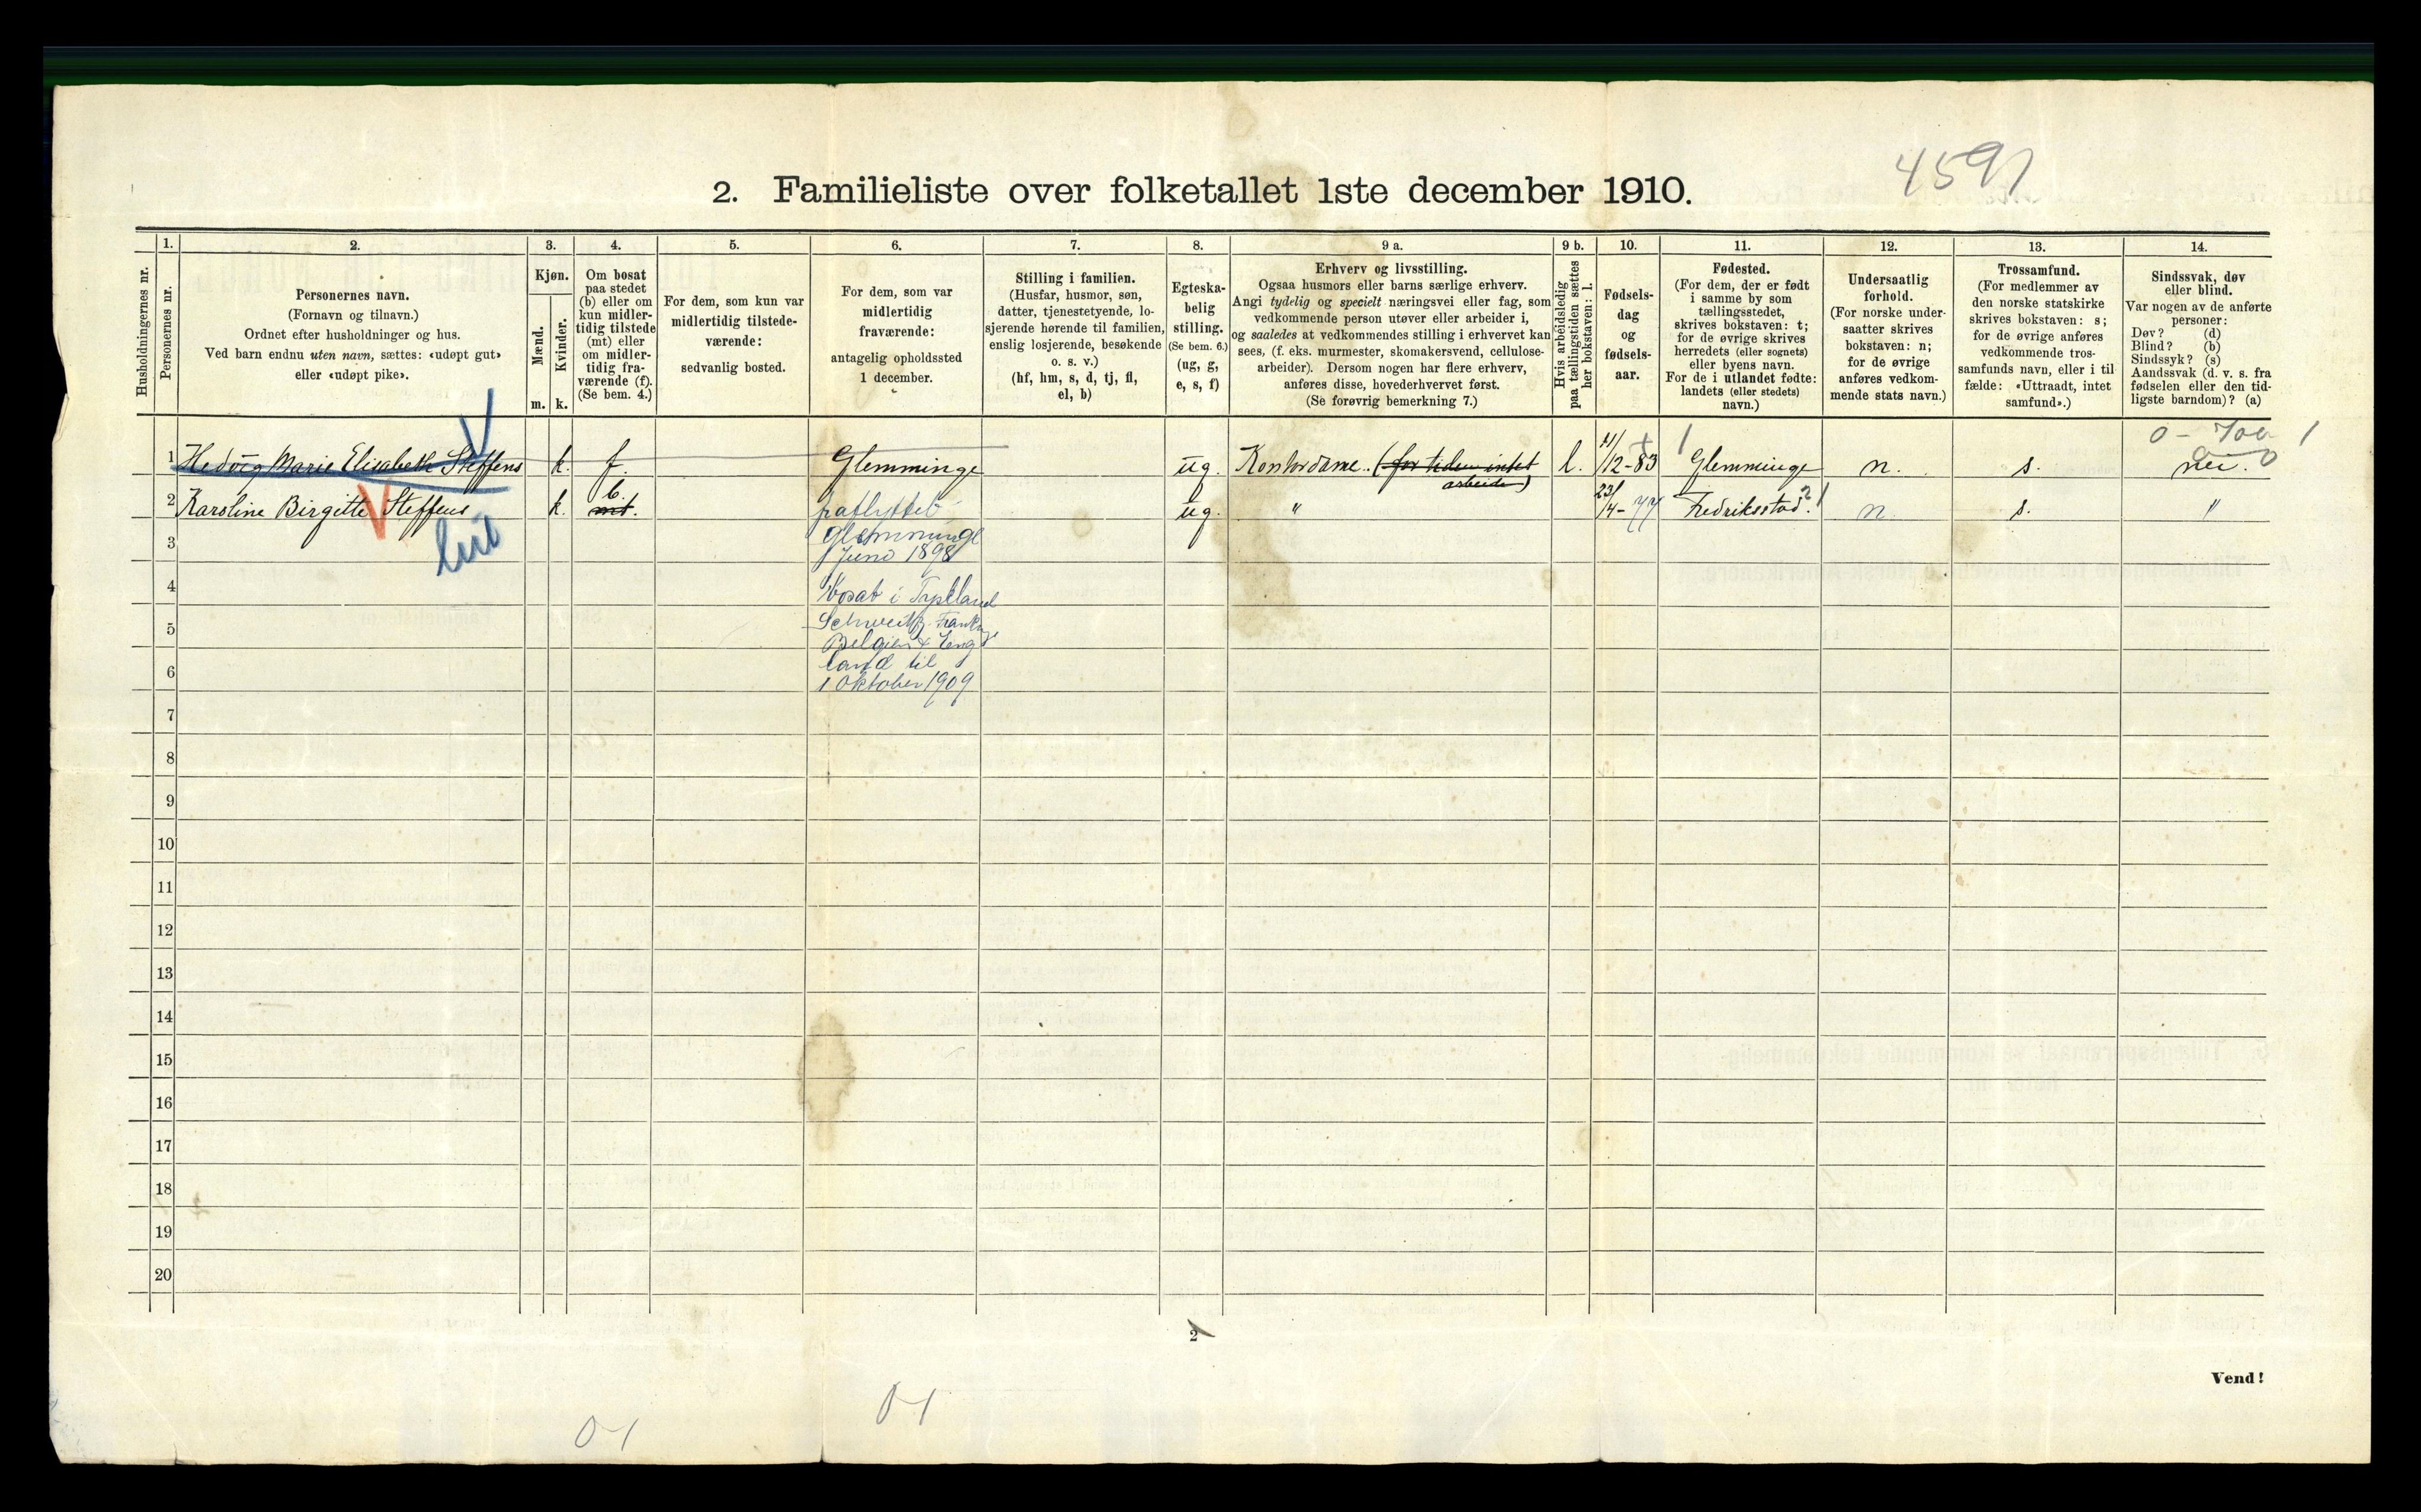 4591
2. Familieliste over folketallet 1ste december 1910.
Husholdningernes nr.
1.
Personernes nr.
2.
Personernes navn.
(Fornavn og tilnavn.)
Ordnet efter husholdninger og hus.
Ved barn endnu uten navn, sættes: «udøpt gut»
eller «udøpt pike».
3.
Kjøn.
Mænd.
m.
Kvinder.
k.
4.
Om bosat
paa stedet
(b) eller om
kun midler-
tidig tilstede
(mt) eller
om midler-
tidig fra-
værende (f).
(Se bem. 4.)
5.
For dem, som kun var
midlertidig tilstede-
værende:
sedvanlig bosted.
6.
For dem, som var
midlertidig
fraværende:
antagelig opholdssted
1 december.
7.
Stilling i familien.
(Husfar, husmor, søn,
datter, tjenestetyende, lo-
sjerende hørende til familien,
enslig losjerende, besøkende
o. s. v.)
(hf, hm, s, d, tj, fl,
el, b)
8.
Egteska-
belig
stilling.
(Se bem. 6.)
(ug, g,
e, s, f)
9 a.
Erhverv og livsstilling.
Ogsaa husmors eller barns særlige erhverv.
Angi tydelig og specielt næringsvei eller fag, som
vedkommende person utøver eller arbeider i,
og saaledes at vedkommendes stilling i erhvervet kan
sees, (f. eks. murmester, skomakersvend, cellulose-
arbeider). Dersom nogen har flere erhverv,
anføres disse, hovederhvervet først.
(Se forøvrig bemerkning 7.)
9 b.
Hvis arbeidsledig
paa tællingstiden sættes
her bokstaven: l.
10.
Fødsels-
dag
og
fødsels-
aar.
11.
Fødested.
(For dem, der er født
i samme by som
tællingsstedet,
skrives bokstaven: t;
for de øvrige skrives
herredets (eller sognets)
eller byens navn.
For de i utlandet fødte:
landets (eller stedets)
navn.)
12.
Undersaatlig
forhold.
(For norske under-
saatter skrives
bokstaven: n;
for de øvrige
anføres vedkom-
mende stats navn.)
13.
Trossamfund.
(For medlemmer av
den norske statskirke
skrives bokstaven: s;
for de øvrige anføres
vedkommende tros-
samfunds navn, eller i til-
fælde: «Uttraadt, intet
samfund».)
14.
Sindssvak, døv
eller blind.
Var nogen av de anførte
personer:
Døv? (d)
Blind? (b)
Sindssyk? (s)
Aandssvak (d. v. s. fra
fødselen eller den tid-
ligste barndom)? (a)
1 Hedvig Marie Elisabeth Steffens k. f. Glemminge ug. Kontordame. (for tiden intet arbeide) l. 11/12-83 Glemminge n. s. nei.
2 Karoline Birgitte Steffens k. b. mt. ug. " 23/4-77 Fredriksstad. n. s. "
fraflyttet
Glemminge
3
Juni 1898
4
Bosat i Tyskland
5
Schweitz Frankrige
Belgien & Eng
land til
6
1 Oktober 1909
7
8
9
10
11
12
13
14
15
16
17
18
19
20
2
Vend!
01
01